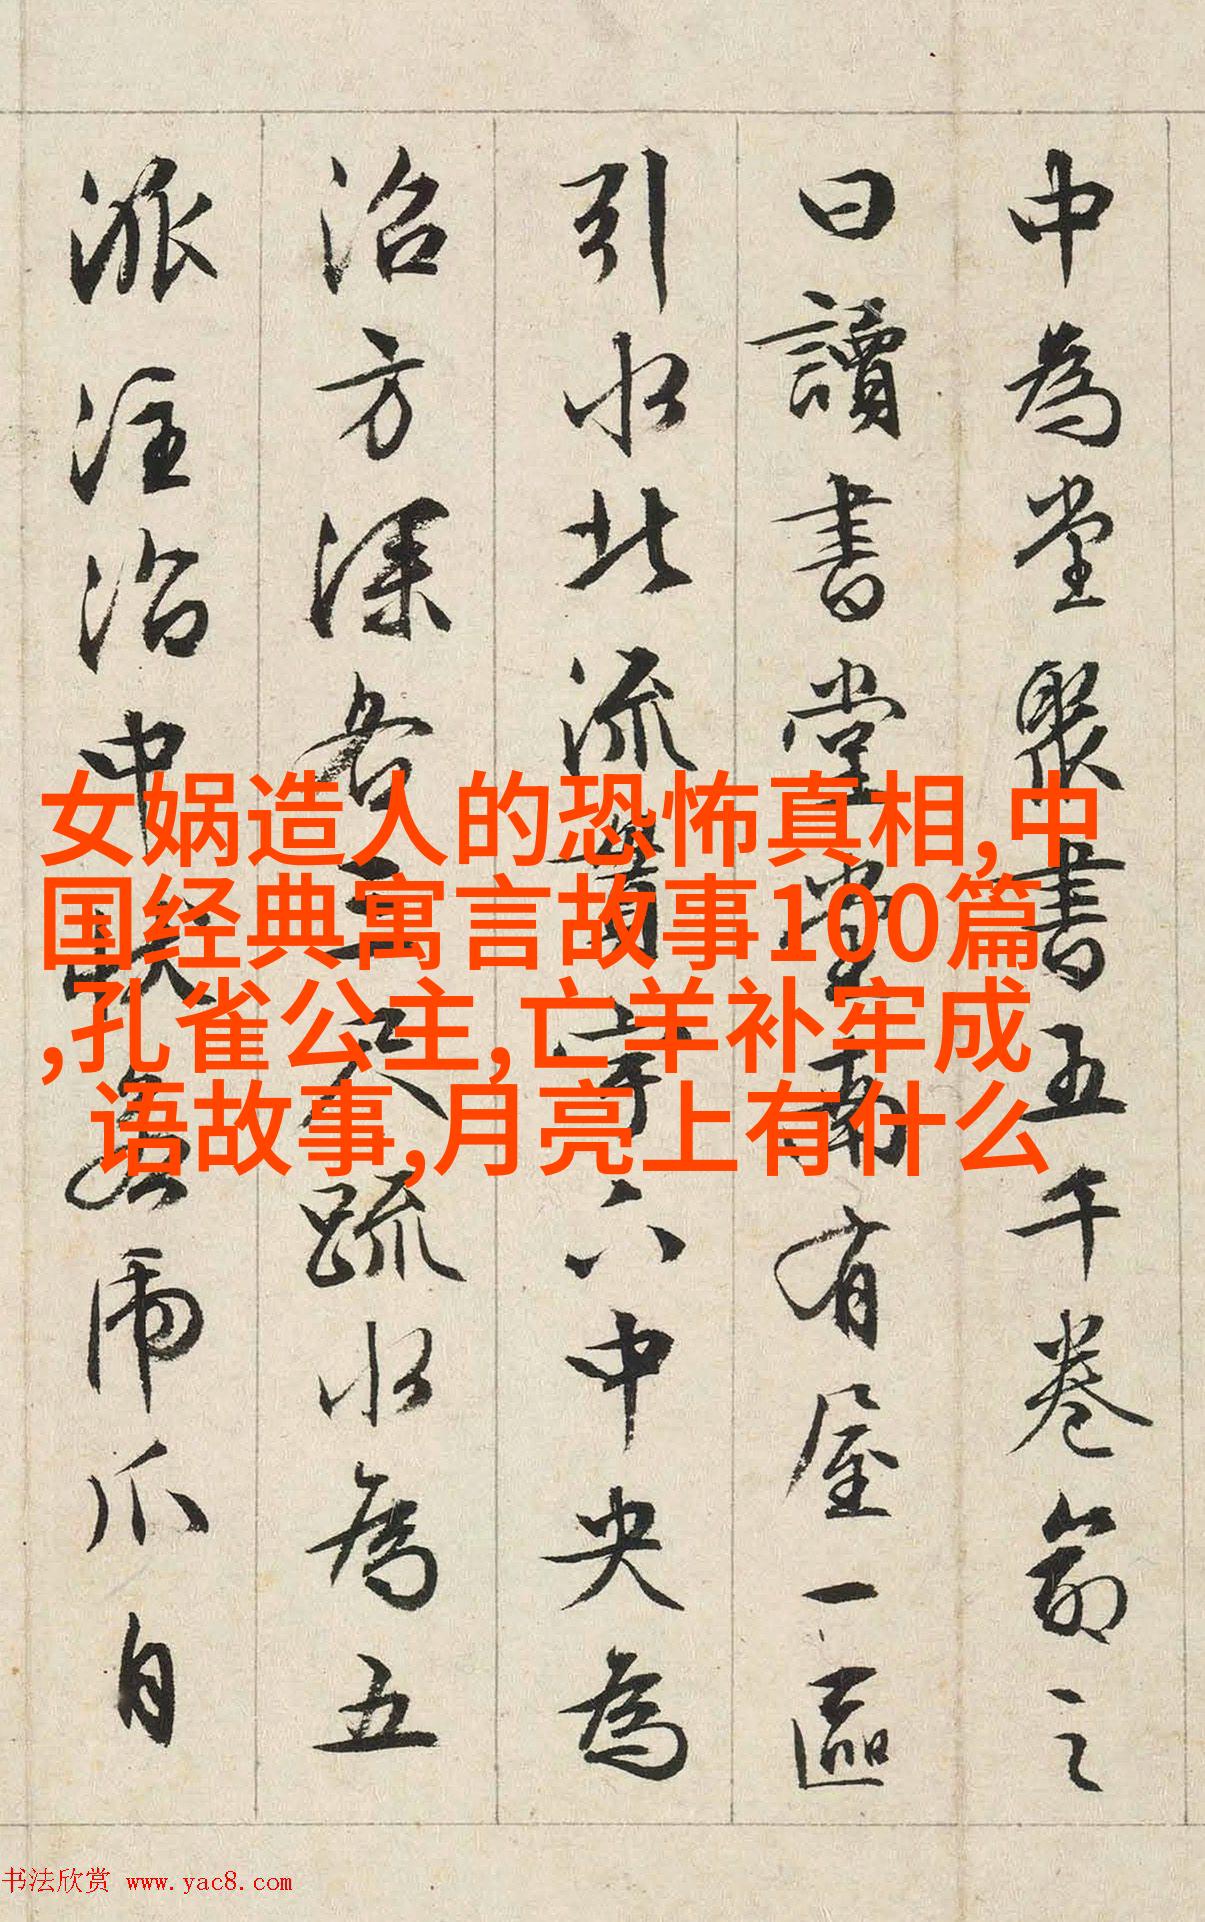 中為堂聚書五千卷命之
曰讀書堂堂南有屋一區
引水北流貫宇下中央為
沼方深各三尺疏水為五
派注沼中狀若虎爪自
女娲造人的恐怖真相,中
国经典寓言故事100篇
,孔雀公主,亡羊补牢成
语故事,月亮上有什么
书法欣赏 www.yac8.com